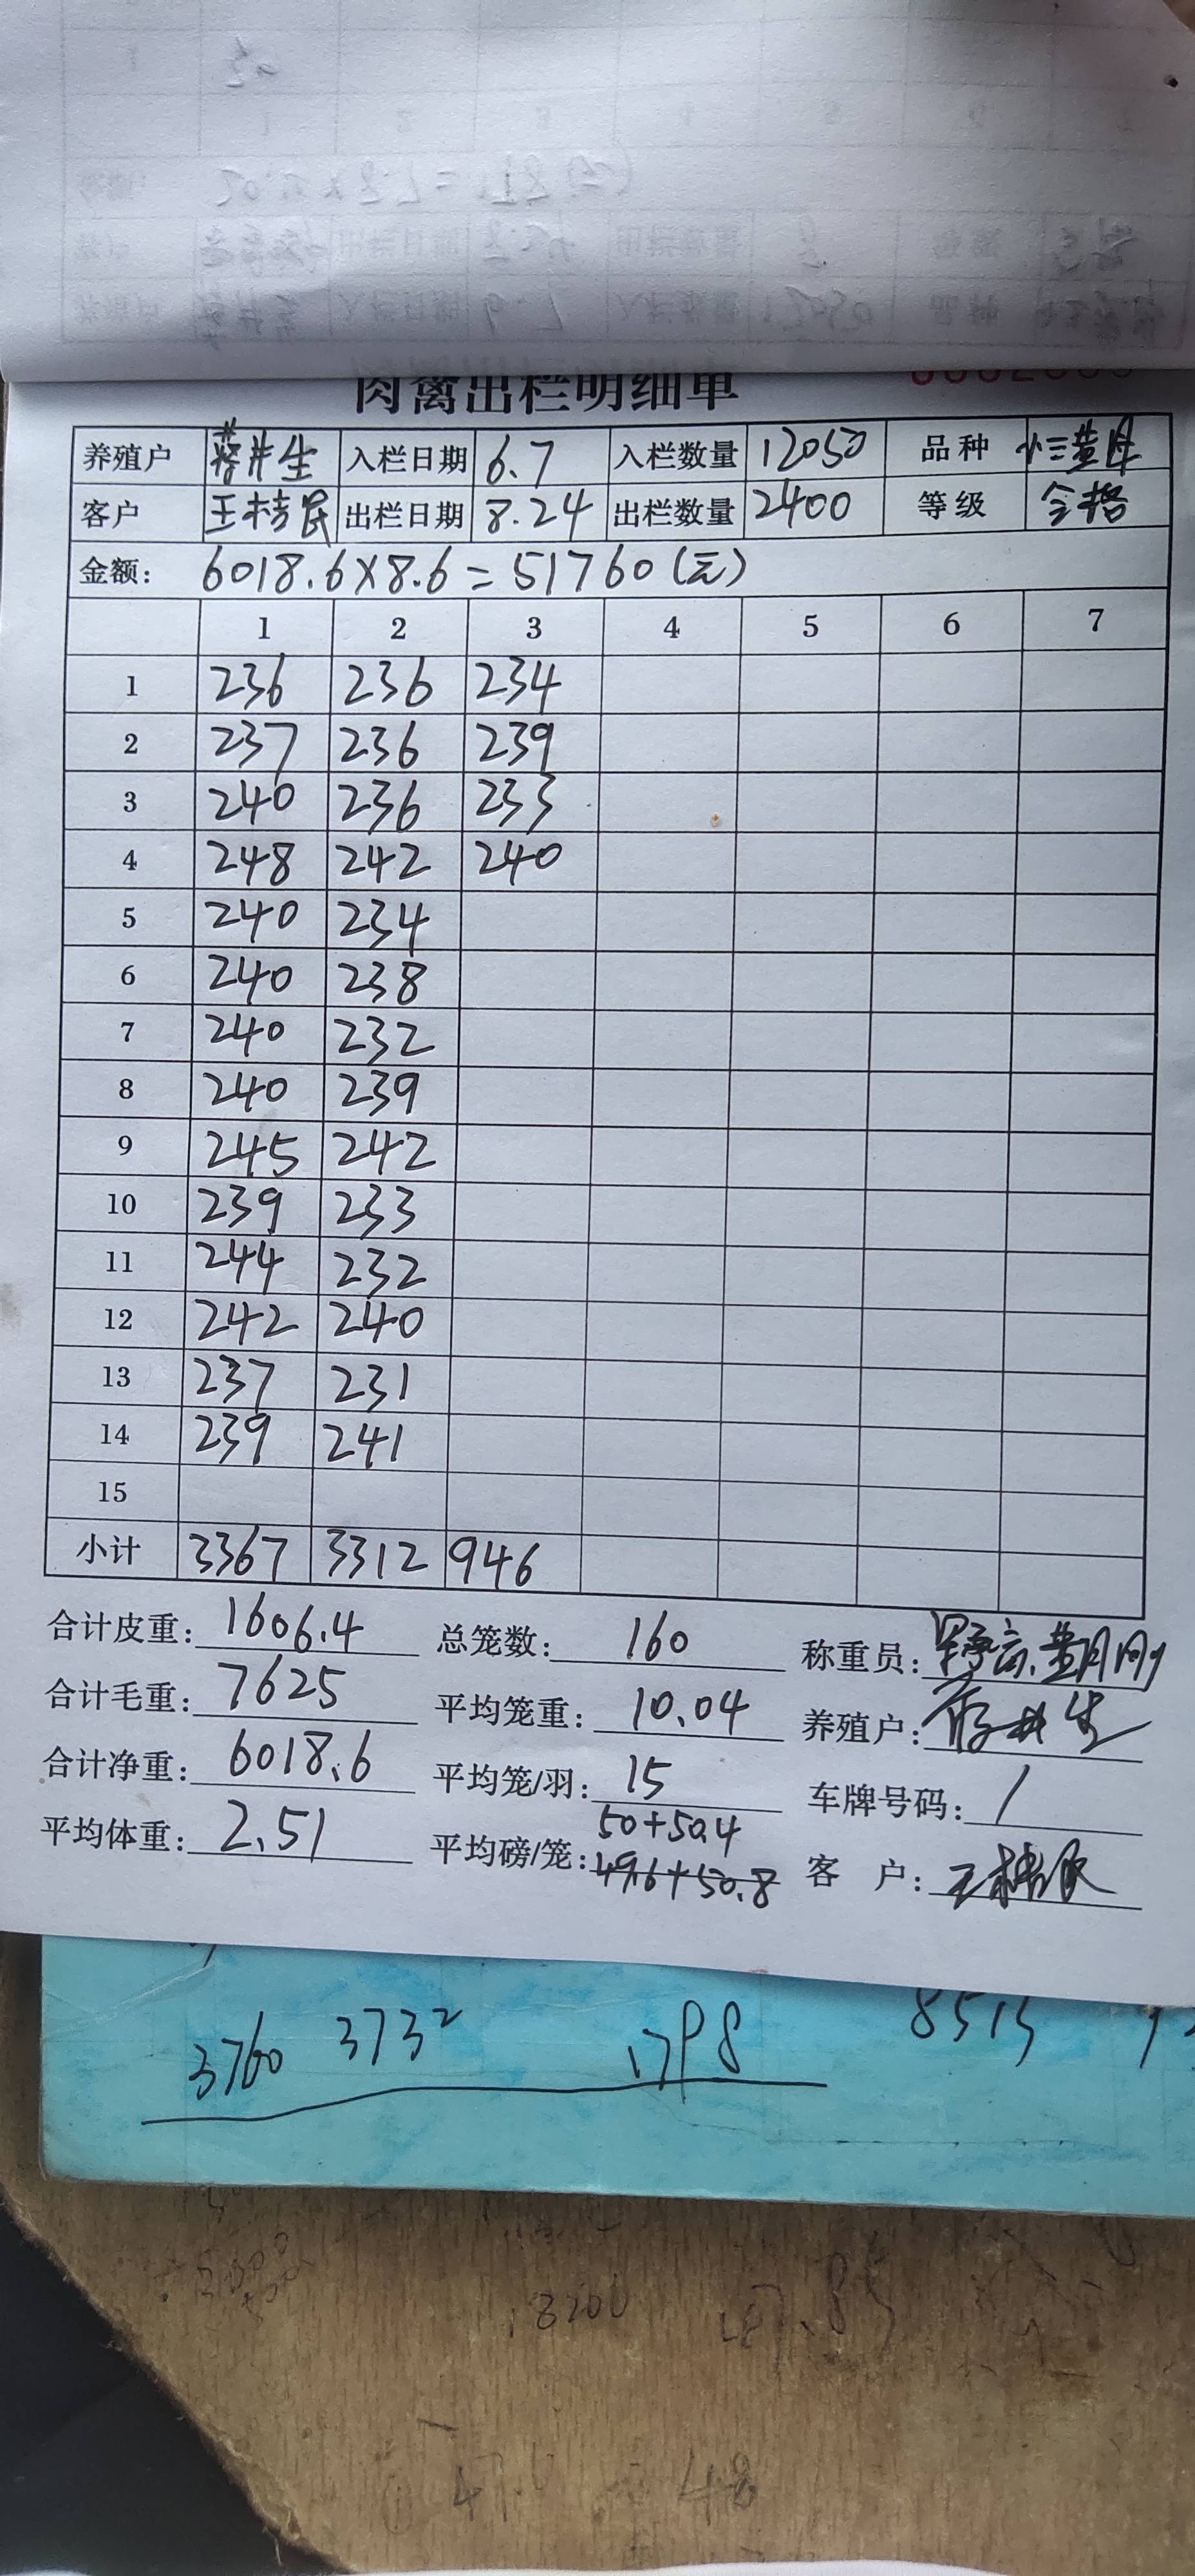 肉禽出栏明细单
养殖户 蒋井生 入栏日期 6.7 入栏数量 12050 品种 小三黄母
客户 王桂民 出栏日期 8.24 出栏数量 2400 等级 合格
金额: 6018.6×8.6=51760(元)
1 2 3 4 5 6 7
1 236 236 234
2 237 236 239
3 240 236 233
4 248 242 240
5 240 234
6 240 238
7 240 232
8 240 239
9 245 242
10 239 233
11 244 232
12 242 240
13 237 231
14 239 241
15
小计 3367 3312 946
合计皮重: 1606.4 总笼数: 160 称重员:
合计毛重: 7625 平均笼重: 10.04 养殖户: 蒋井生
合计净重: 6018.6 平均笼/羽: 15 车牌号码: /
50+50.4
平均体重: 2.51 平均磅/笼: 49.6+50.8 客 户: 王桂民
3760 3732 1798 8515